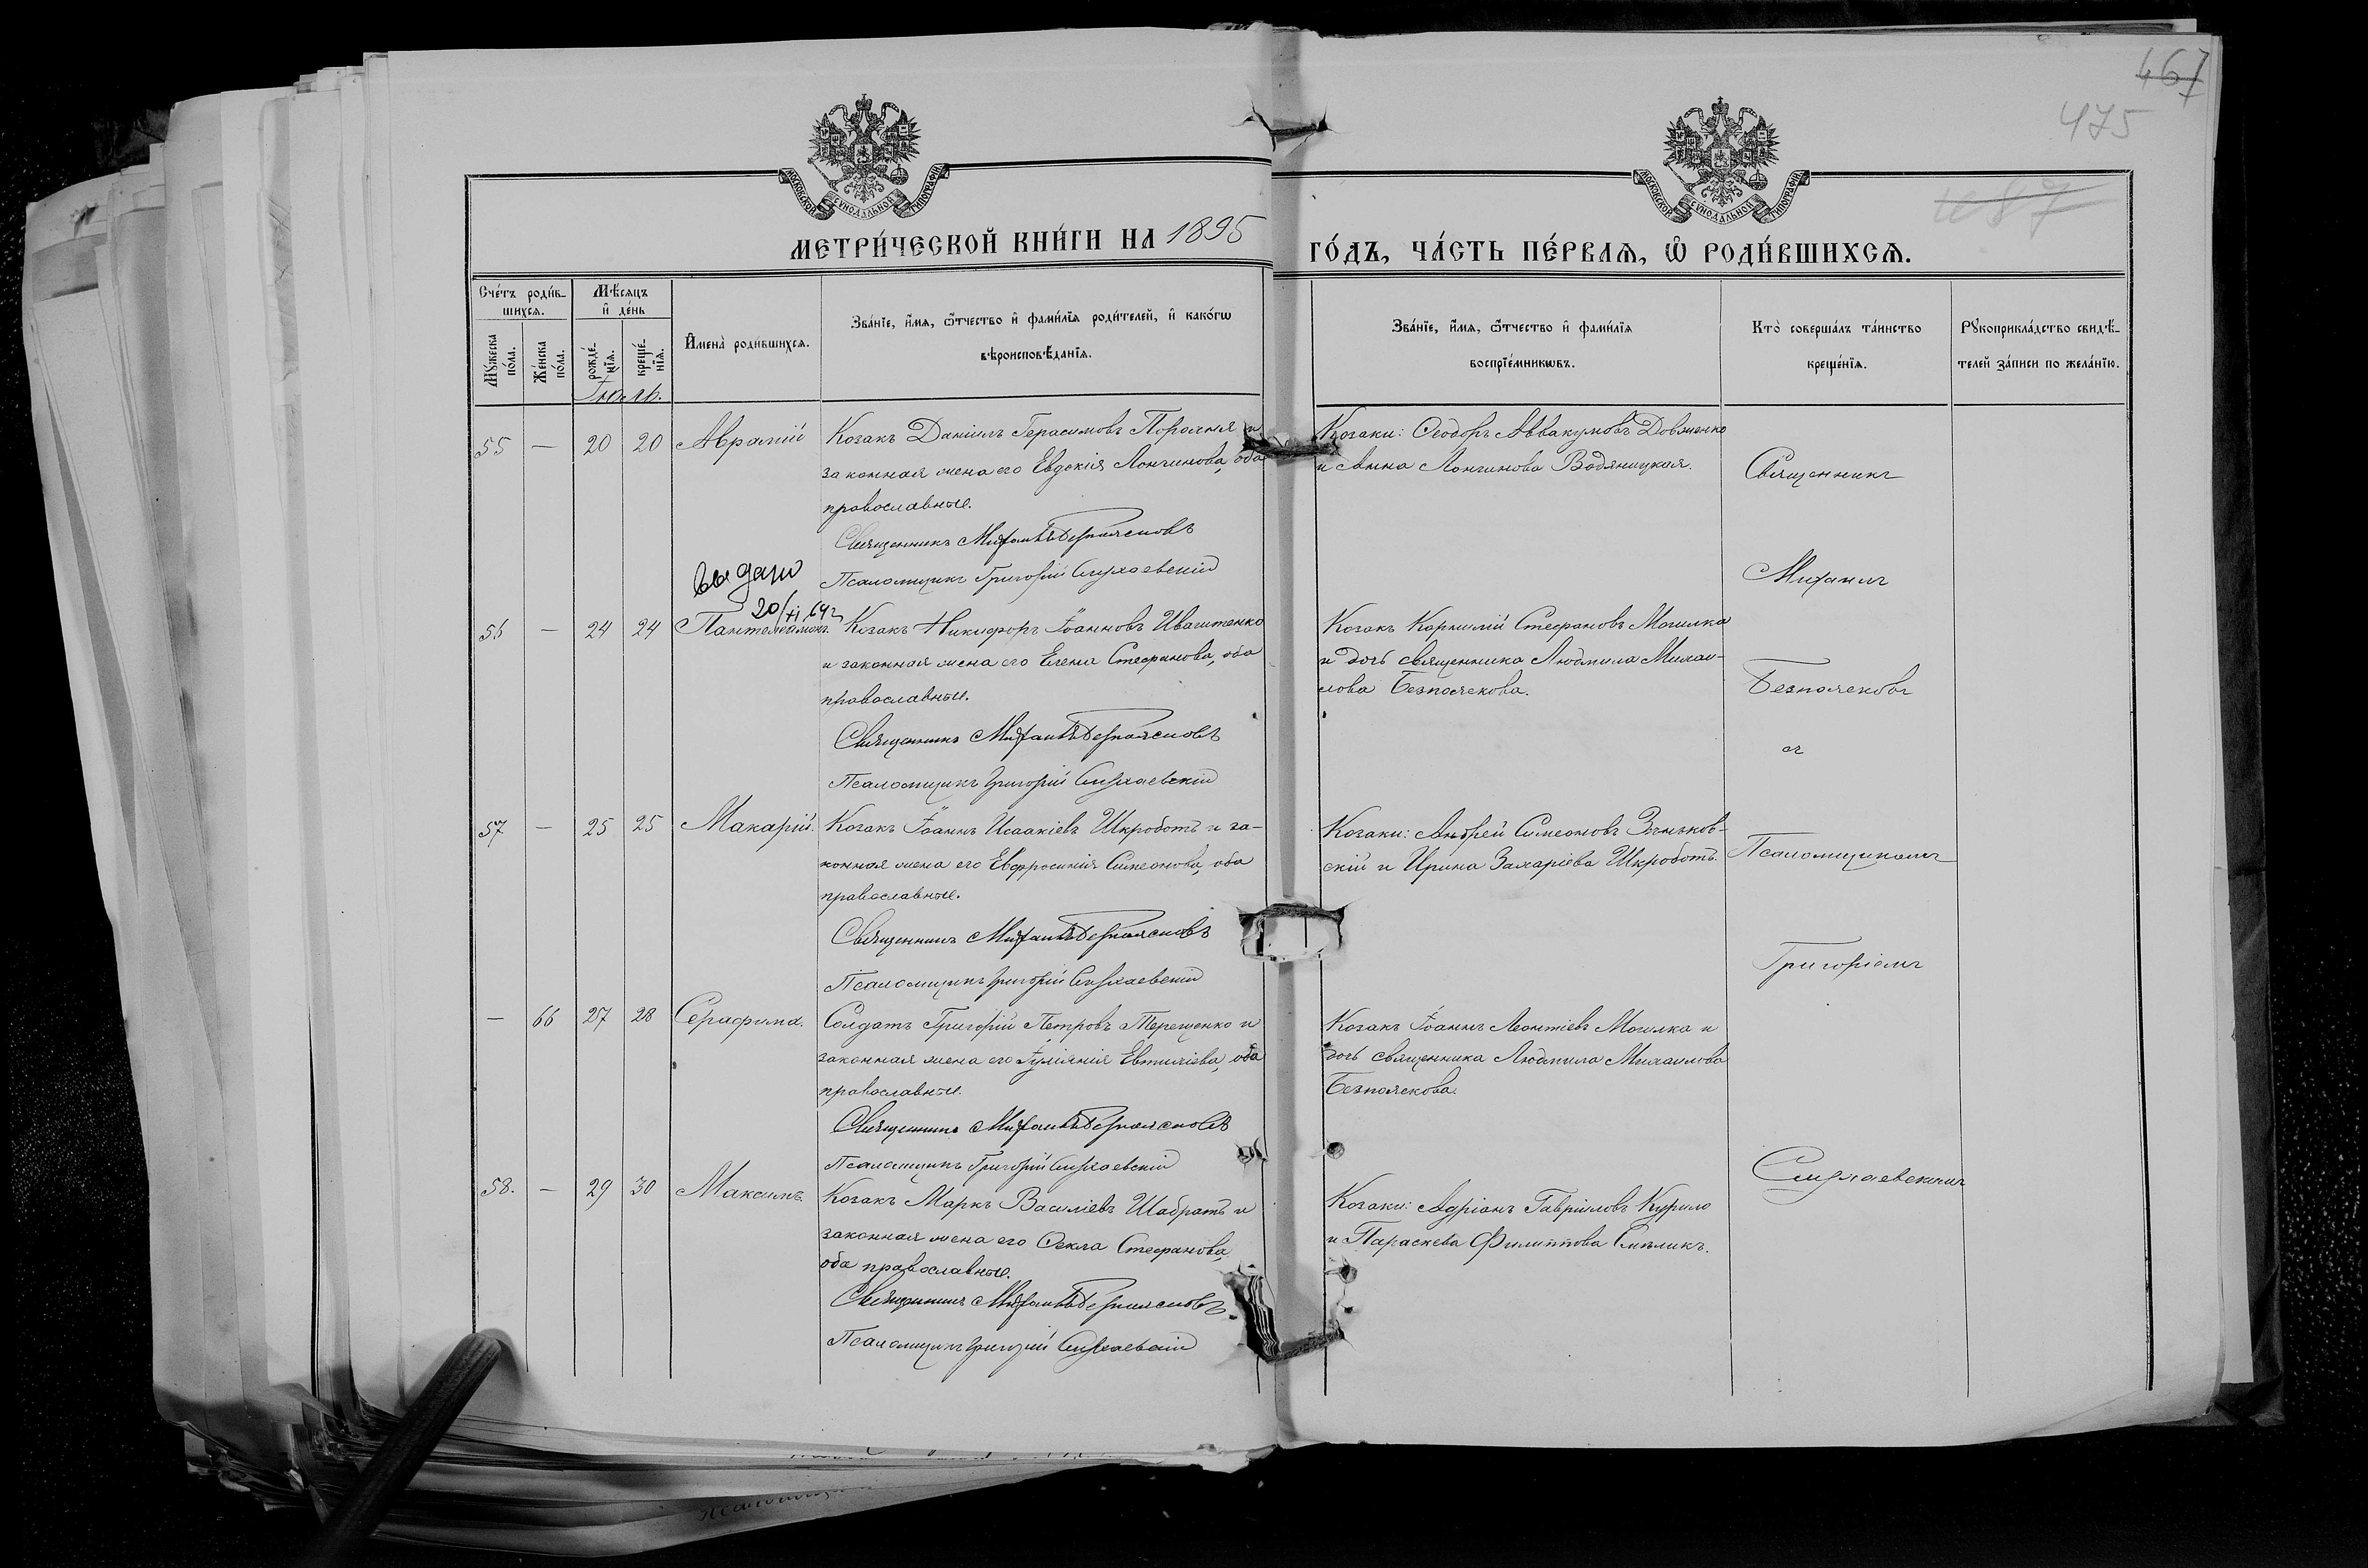 467
475
МОСКОВСКОЙ СѴНОДАЛЬНОЙ ТИПОГРАФІИ
МОСКОВСКОЙ СѴНОДАЛЬНОЙ ТИПОГРАФІИ
МЕТРИ́ЧЕСКОЙ КНИ́ГИ НА 1895 ГО́ДЪ, ЧА́СТЬ ПЕ́РВАѦ, Ѡ РОДИ́ВШИХСѦ.
Сче́тъ роди́в-
шихсѧ.
Мꙋ́жеска
по́ла.
Же́нска
по́ла.
Мѣ́сѧцъ
и҆ де́нь
рожде́-
нїѧ.
креще́-
нїѧ.
И҆мена̀ роди́вшихсѧ.
Зва́нїе, и҆́мѧ, ѻ҆́тчество и҆ фами́лїѧ роди́телей, и҆ како́гѡ
вѣроисповѣ́данїѧ.
Зва́нїе, и҆́мѧ, ѻ҆́тчество и҆ фами́лїѧ
воспрїе́мникѡвъ.
Кто̀ соверша́лъ та́инство
креще́нїѧ.
Рꙋкоприкла́дство свидѣ́-
телей за́писи по жела́нїю.
Іюль.
55 — 20 20 Аврамій
Козакъ Даніилъ Герасимовъ Порохня и
законная жена его Евдокія Лонгинова, оба
православные.
Священникъ Михаилъ Безпоясковъ
Псаломщикъ Григорій Слухаевскій
Козаки: Ѳеодоръ Аввакумовъ Довженко
и Анна Лонгинова Водяницкая.
Священникъ
Михаилъ
Безпоясковъ
съ
Псаломщикомъ
Григоріемъ
Слухаевскимъ
выдано
20/XI 64г
56 — 24 24 Пантелеимонъ.
Козакъ Никифоръ Іоанновъ Иващенко
и законная жена его Елена Стефанова, оба
православные.
Священникъ Михаилъ Безпоясковъ
Псаломщикъ Григорій Слухаевскій
Козакъ Корнилій Стефановъ Могилка
и дочь священника Людмила Михаи-
лова Безпояскова.
57 — 25 25 Макарій.
Козакъ Іоаннъ Исаакіевъ Шкроботъ и за-
конная жена его Евфросинія Симеонова, оба
православные.
Священникъ Михаилъ Безпоясковъ
Псаломщикъ Григорій Слухаевскій
Козаки: Андрей Симеоновъ Зеньков-
скій и Ирина Захаріева Шкроботъ.
— 66 27 28 Серафима.
Солдатъ Григорій Петровъ Терещенко и
законная жена его Іуліанія Евтихіева, оба
православные.
Священникъ Михаилъ Безпоясковъ
Псаломщикъ Григорій Слухаевскій
Козакъ Іоаннъ Леонтіевъ Могилка и
дочь священника Людмила Михаилова
Безпояскова.
58. — 29 30 Максимъ.
Козакъ Маркъ Василіевъ Шабратъ и
законная жена его Ѳекла Стефанова,
оба православные.
Священникъ Михаилъ Безпоясковъ
Псаломщикъ Григорій Слухаевскій
Козаки: Адріанъ Гавріиловъ Курило
и Параскева Филиппова Смѣликъ.